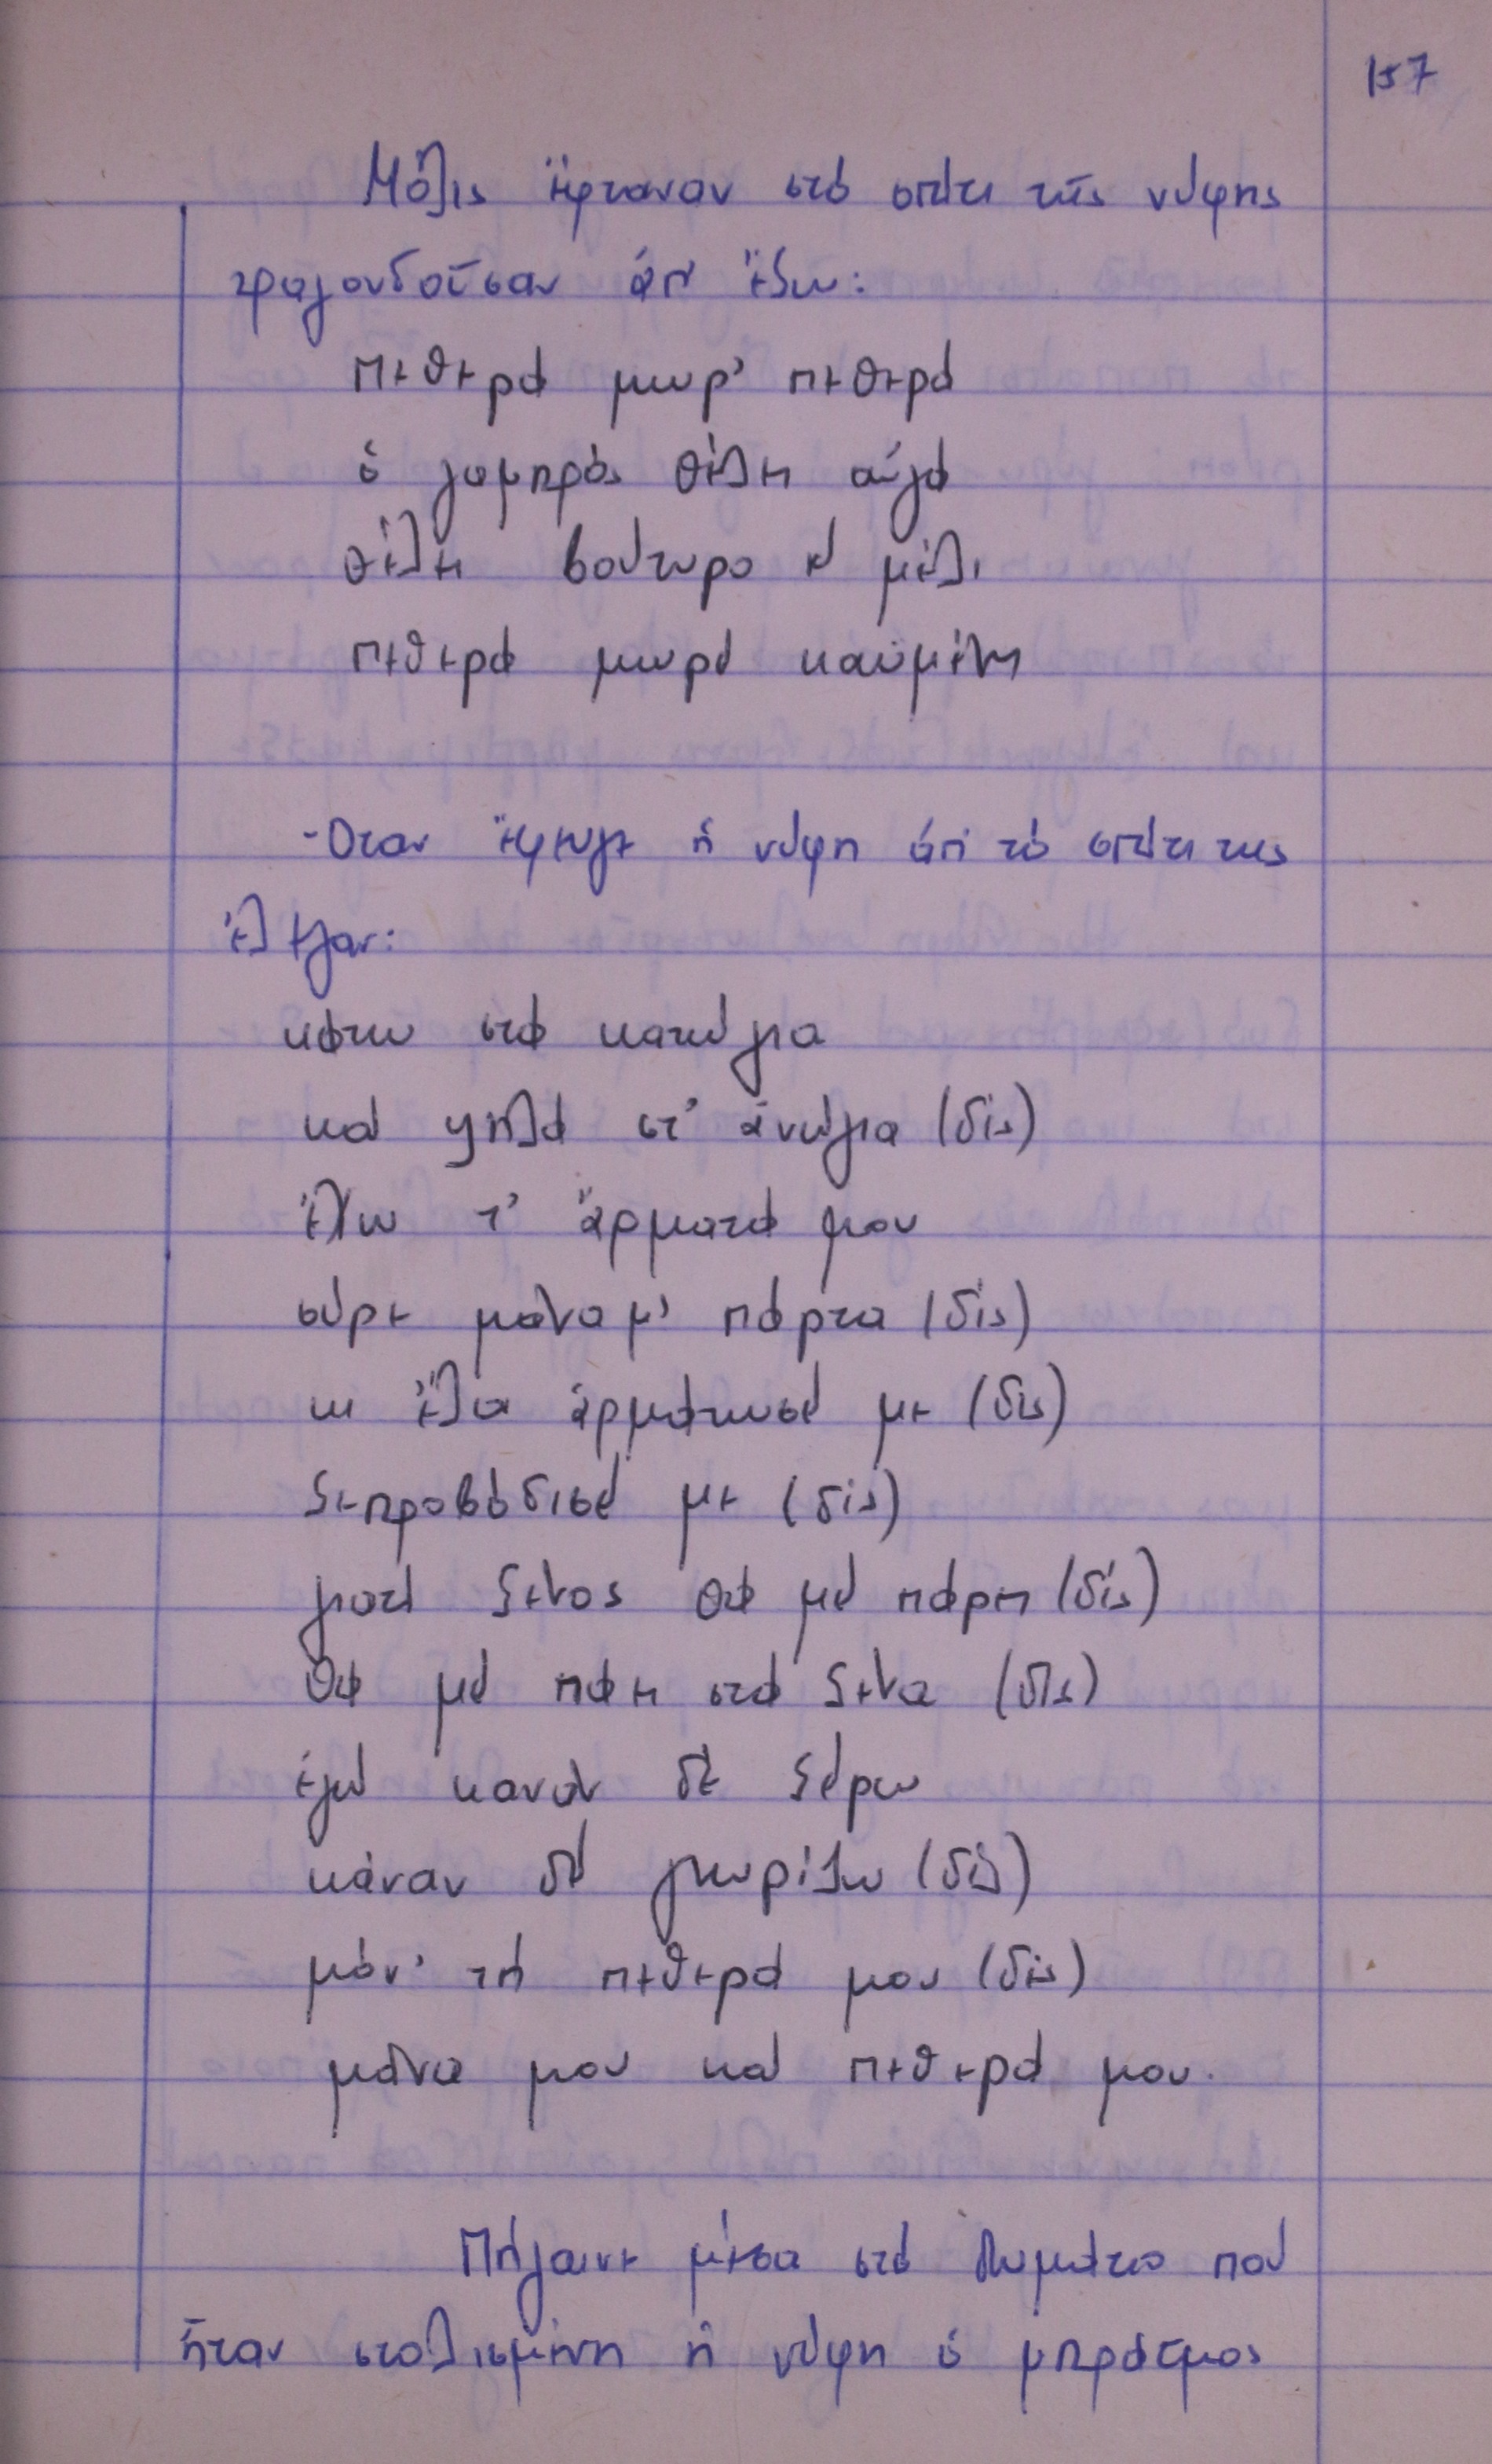 157
Μόλις ἔφταναν στό σπίτι τῆς νύφης
τραγουδοῦσαν ἀπ' ἔξω:
πεθερά μωρ' πεθερά
ὁ γαμπρός θέλει αὐγά
θέλει βούτυρο κί μέλι
πεθερά μωρέ καϋμένη
-Οταν ἔφευγε ἡ νύφη ἀπ' τό σπίτι της
ἔλεγαν:
κάτω στά κατώγια
καί ψηλά στ' ἀνώγια (δίς)
ἔχω τ' ἄρματά μου
σύρε μάνα μ' πάρτα (δίς)
κι ἔλα ἀρμάτωσέ με (δίς)
ξεπροβόδισέ με (δίς)
γιατί ξένος θά μέ πάρη (δίς)
θά μέ πάει στά ξένα (δίς)
ἐγώ κανάν δέ ξέρω
κάναν δέ γνωρίζω (δίς)
μόν' τή πεθερά μου (δίς)
μάνα μου καί πεθερά μου.
Πήγαινε μέσα στό δωμάτιο πού
ἦταν στολισμένη ἡ νύφη ὁ μπράτιμος